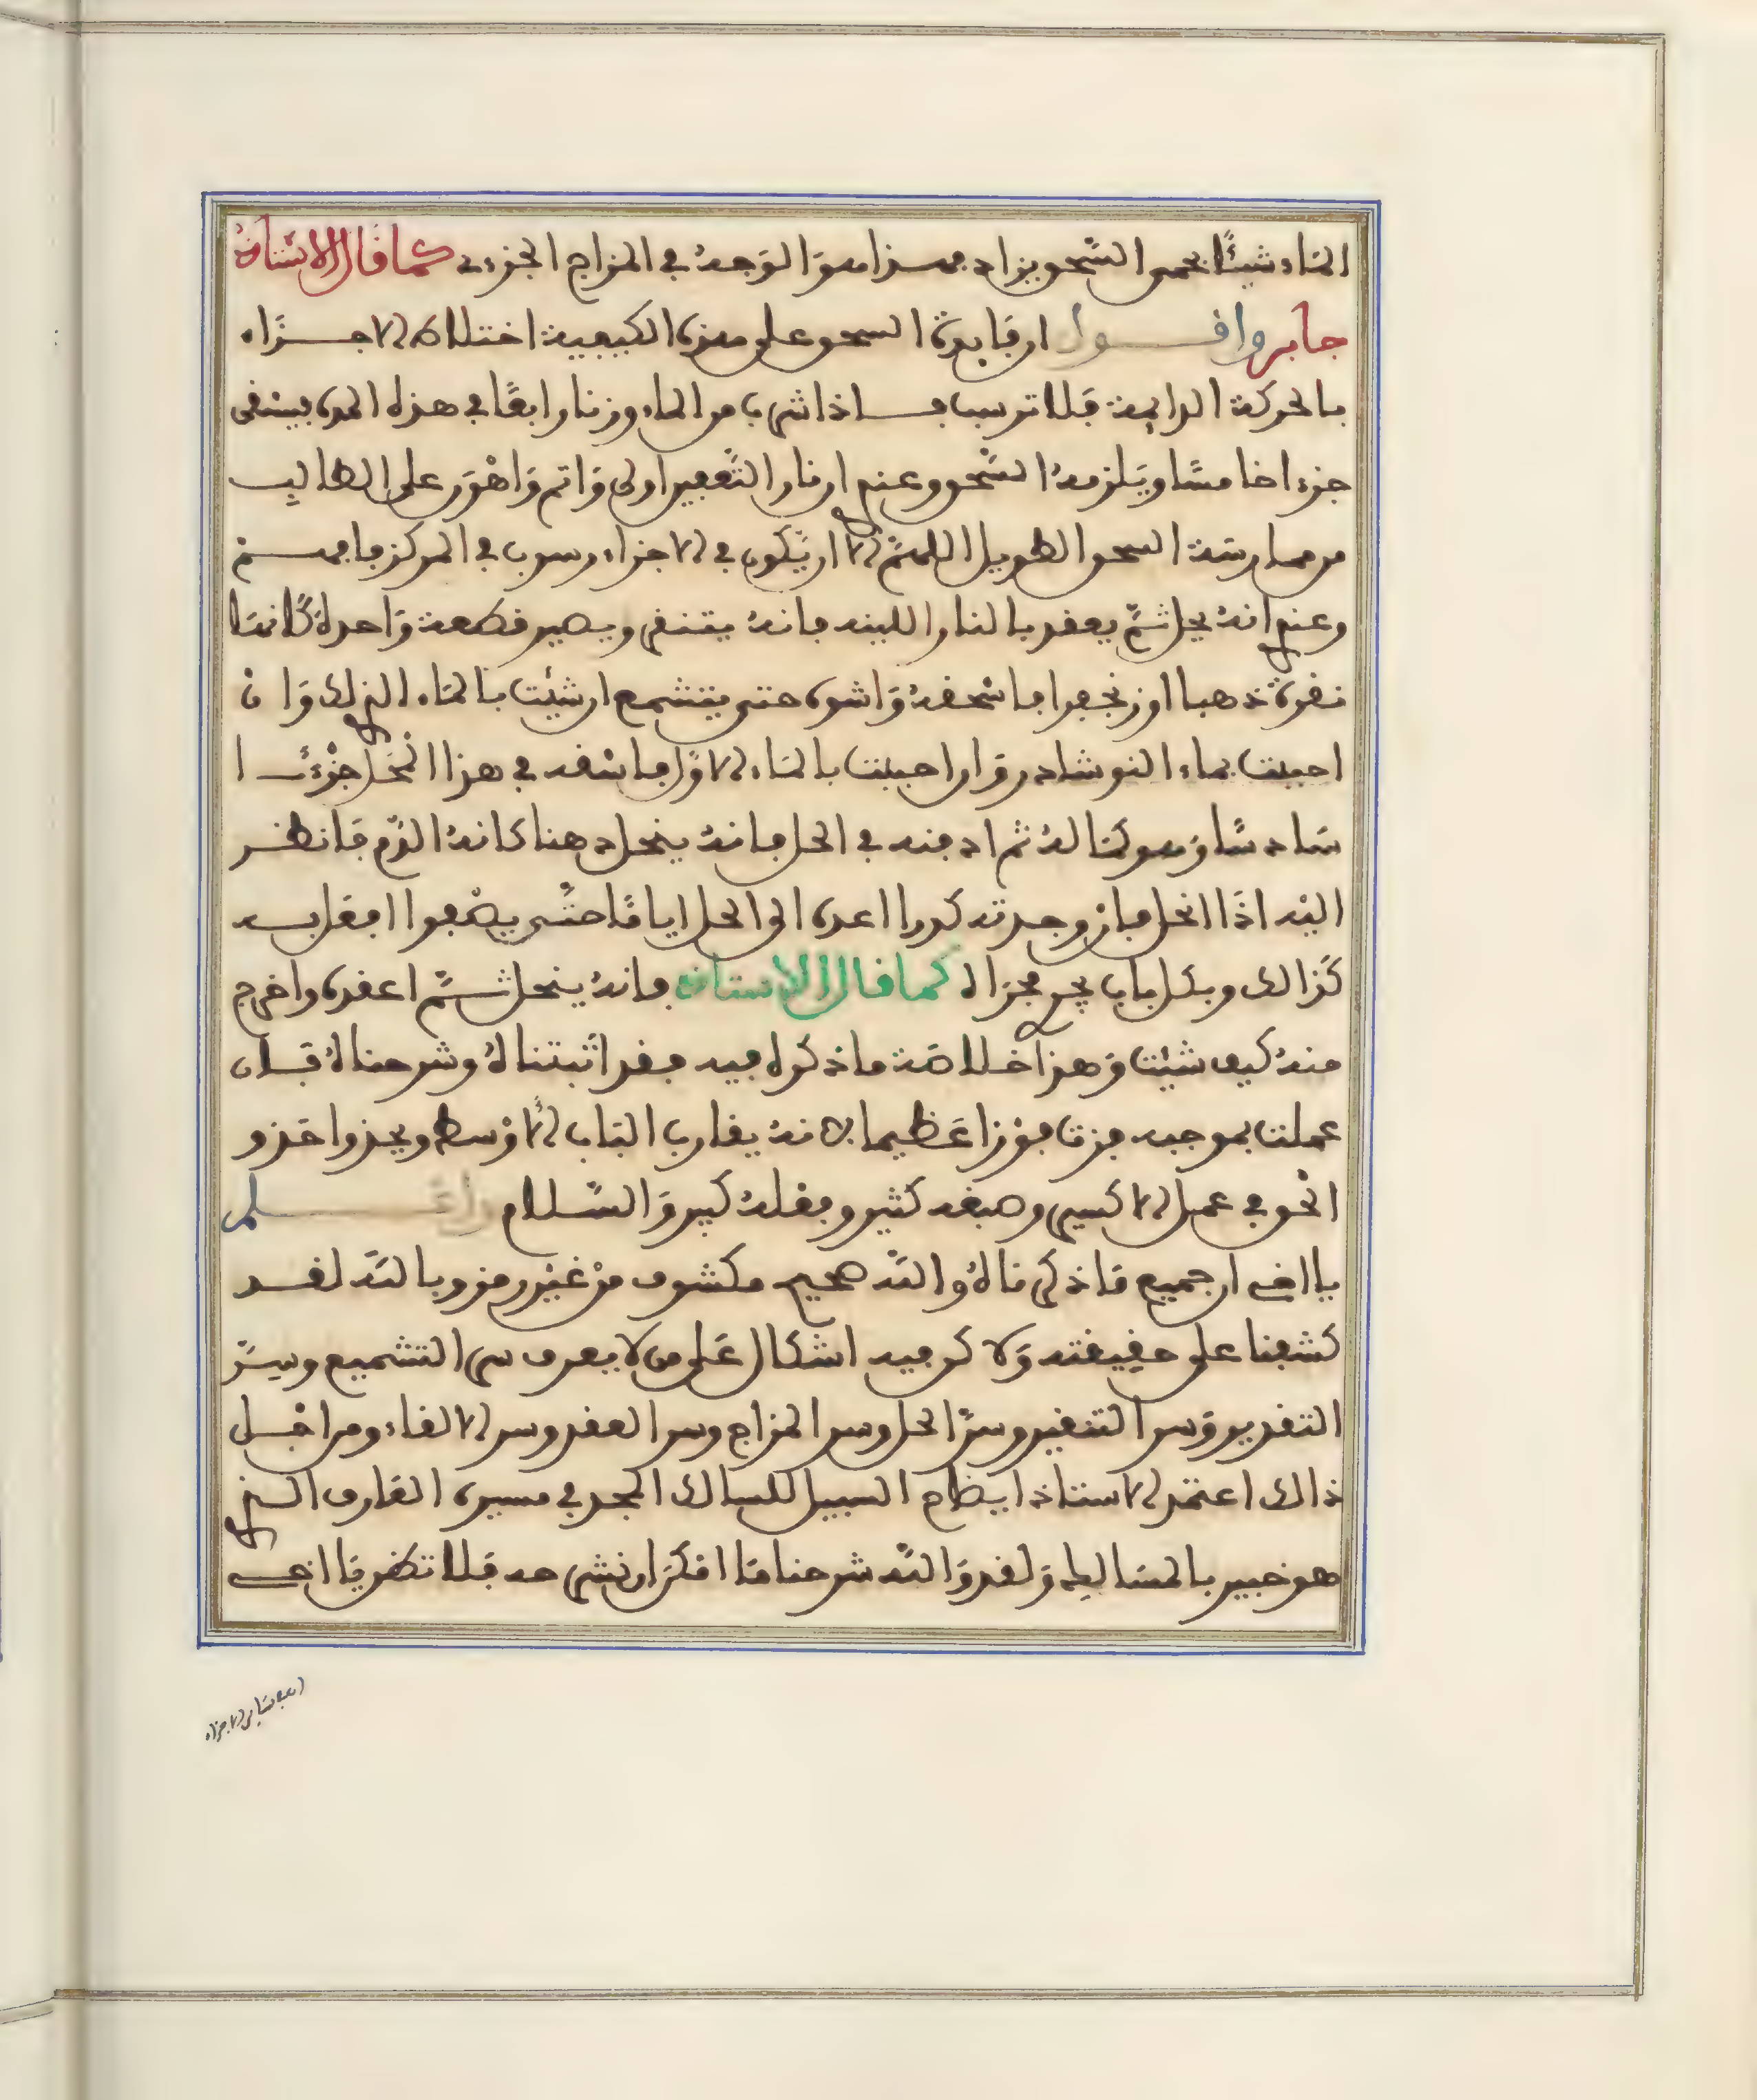 الماء شيئًا بحسن السَّحق يزاد فهذا هو الوجه في المزاج الجزءى كما قال الاستاذ
جابر واقول ان فايدة السحق على هذه الكيفية اختلاط الاجزاء
بالحركة الدايمة فلا ترسب فاذا شرب من الماء وزنا رابعًا في هذه المدة فيسقى
جزءا خامسًا ويلزمه السَّحق وعندي ان نار التَّعفين اولى واتم واهون على الطالب
من ممارسة السحق الطويل اللهمَّ الا ان يكون في الاجزاء رسوب في المركز فافهم
وعندي انه يحل ثمَّ يعقد بالنار اللينه فانه يتنقى ويصير قطعة واحدة كانها
نقرة ذهبا او زنجفرا فاسحقه واشوه حتى يتشمع ان شيت بالماء الذي لك وان
احببت بماء النوشادر وان احببت بالماء الاول فاسقه في هذا المحل جزءًا
سادسًا وهو كماله ثم ادفنه في الحل فانه ينحل دهنا كانه الدم فانظر
اليه اذا انحل فان وجدته كدرا اعده الى الحل اياما حتَّى يصفوا افعل به
كذالك وبكل باب يجرى مجراه كما قال الاستاذ فانه ينحل ثمَّ اعقده واخرج
منه كيف شيت وهذا خلاصة ما ذكره فيه فقد اثبتناه وشرحناه فان
عملت بموجبه فزت فوزا عظيما لانه يقارب الباب الاوسط ويحذوا حذو
الحق في عمل الاكسير وصبغه كثير وفعله كبير والسَّلام واعلم
يا اخى ان جميع ما ذكرناه والله صحيح مكشوف من غير رمز وبالله لقد
كشفنا على حقيقته ولاكن فيه اشكال على من لا يعرف سر التشميع وسرَّ
التفريق وسر التنقير وسرَّ الحل وسر المزاج وسر العقد وسر الالقاء ومن اجل
ذالك اعتمد الاستاذ ايضاح السبيل للسالك المجد في مسيره العارف الذي
هو خبير بالمسالك ولقد والله شرحنا ما امكن ان نشرحه فلا تظن يا اخى